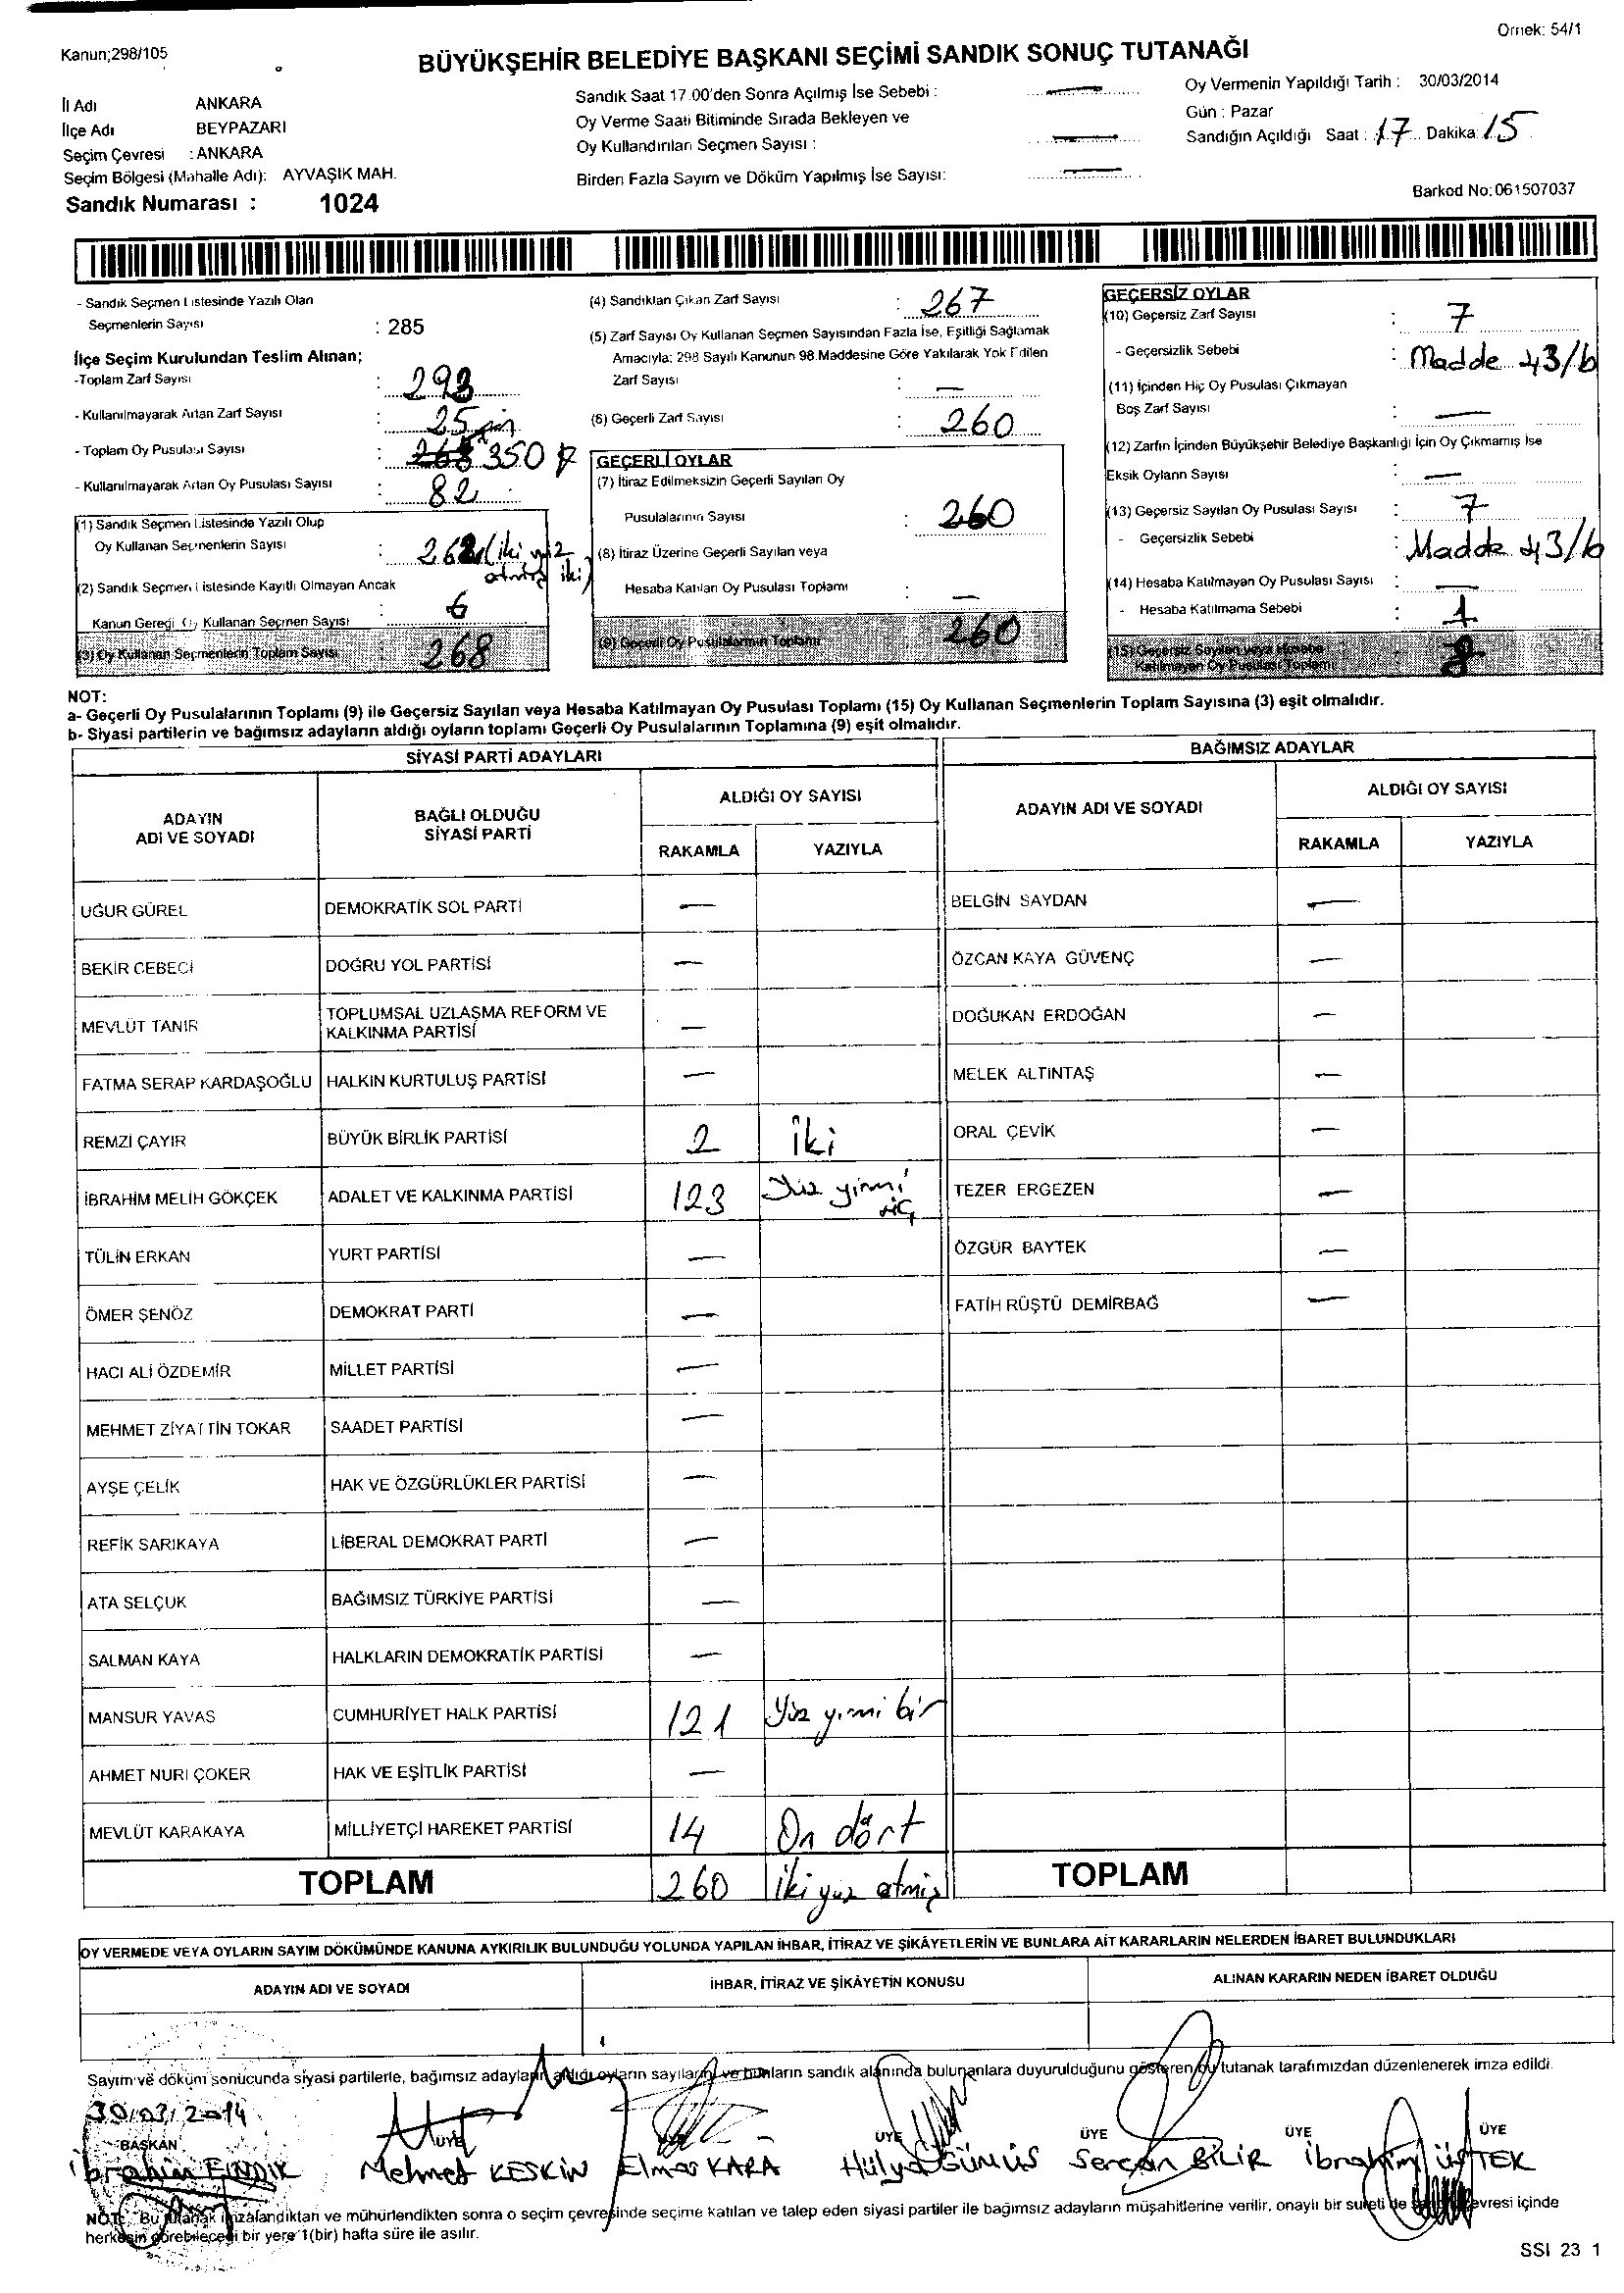 Örnek: 54/1
Kanun;298/105
BÜYÜKŞEHİR BELEDİYE BAŞKANI SEÇİMİ SANDIK SONUÇ TUTANAĞI
İl Adı ANKARA
İlçe Adı BEYPAZARI
Seçim Çevresi : ANKARA
Seçim Bölgesi (Mahalle Adı): AYVAŞIK MAH.
Sandık Numarası : 1024
Sandık Saat 17.00'den Sonra Açılmış İse Sebebi : —
Oy Verme Saati Bitiminde Sırada Bekleyen ve
Oy Kullandırılan Seçmen Sayısı : —
Birden Fazla Sayım ve Döküm Yapılmış İse Sayısı: —
Oy Vermenin Yapıldığı Tarih : 30/03/2014
Gün : Pazar
Sandığın Açıldığı Saat : 17 Dakika: 15
Barkod No: 061507037
- Sandık Seçmen Listesinde Yazılı Olan
Seçmenlerin Sayısı : 285
İlçe Seçim Kurulundan Teslim Alınan;
-Toplam Zarf Sayısı : 293
- Kullanılmayarak Artan Zarf Sayısı : 25
- Toplam Oy Pusulası Sayısı : 268 350
- Kullanılmayarak Artan Oy Pusulası Sayısı : 82
(1) Sandık Seçmen Listesinde Yazılı Olup
Oy Kullanan Seçmenlerin Sayısı : 262 (iki yüz
atmış iki)
(2) Sandık Seçmen Listesinde Kayıtlı Olmayan Ancak
Kanun Gereği Oy Kullanan Seçmen Sayısı : 6
(3) Oy Kullanan Seçmenlerin Toplam Sayısı 268
(4) Sandıktan Çıkan Zarf Sayısı : 267
(5) Zarf Sayısı Oy Kullanan Seçmen Sayısından Fazla İse, Eşitliği Sağlamak
Amacıyla; 298 Sayılı Kanunun 98.Maddesine Göre Yakılarak Yok Edilen
Zarf Sayısı : —
(6) Geçerli Zarf Sayısı : 260
GEÇERLİ OYLAR
(7) İtiraz Edilmeksizin Geçerli Sayılan Oy
Pusulalarının Sayısı : 260
(8) İtiraz Üzerine Geçerli Sayılan veya
Hesaba Katılan Oy Pusulası Toplamı : —
(9) Geçerli Oy Pusulalarının Toplamı 260
GEÇERSİZ OYLAR
(10) Geçersiz Zarf Sayısı : 7
- Geçersizlik Sebebi : Madde 43/b
(11) İçinden Hiç Oy Pusulası Çıkmayan
Boş Zarf Sayısı : —
(12) Zarfın İçinden Büyükşehir Belediye Başkanlığı İçin Oy Çıkmamış İse
Eksik Oyların Sayısı : —
(13) Geçersiz Sayılan Oy Pusulası Sayısı : 7
- Geçersizlik Sebebi : Madde 43/b
(14) Hesaba Katılmayan Oy Pusulası Sayısı : —
- Hesaba Katılmama Sebebi : 1
(15) Geçersiz Sayılan veya Hesaba
Katılmayan Oy Pusulası Toplamı 8
NOT:
a- Geçerli Oy Pusulalarının Toplamı (9) ile Geçersiz Sayılan veya Hesaba Katılmayan Oy Pusulası Toplamı (15) Oy Kullanan Seçmenlerin Toplam Sayısına (3) eşit olmalıdır.
b- Siyasi partilerin ve bağımsız adayların aldığı oyların toplamı Geçerli Oy Pusulalarının Toplamına (9) eşit olmalıdır.
SİYASİ PARTİ ADAYLARI BAĞIMSIZ ADAYLAR
ADAYIN
ADI VE SOYADI
BAĞLI OLDUĞU
SİYASİ PARTİ
ALDIĞI OY SAYISI
RAKAMLA YAZIYLA
ADAYIN ADI VE SOYADI
ALDIĞI OY SAYISI
RAKAMLA YAZIYLA
UĞUR GÜREL DEMOKRATİK SOL PARTİ — BELGİN SAYDAN —
BEKİR CEBECİ DOĞRU YOL PARTİSİ — ÖZCAN KAYA GÜVENÇ —
MEVLÜT TANIR TOPLUMSAL UZLAŞMA REFORM VE
KALKINMA PARTİSİ — DOĞUKAN ERDOĞAN —
FATMA SERAP KARDAŞOĞLU HALKIN KURTULUŞ PARTİSİ — MELEK ALTINTAŞ —
REMZİ ÇAYIR BÜYÜK BİRLİK PARTİSİ 2 iki ORAL ÇEVİK —
İBRAHİM MELİH GÖKÇEK ADALET VE KALKINMA PARTİSİ 123 Yüz yirmi
üç TEZER ERGEZEN —
TÜLİN ERKAN YURT PARTİSİ — ÖZGÜR BAYTEK —
ÖMER ŞENÖZ DEMOKRAT PARTİ — FATİH RÜŞTÜ DEMİRBAĞ —
HACI ALİ ÖZDEMİR MİLLET PARTİSİ —
MEHMET ZİYATTİN TOKAR SAADET PARTİSİ —
AYŞE ÇELİK HAK VE ÖZGÜRLÜKLER PARTİSİ —
REFİK SARIKAYA LİBERAL DEMOKRAT PARTİ —
ATA SELÇUK BAĞIMSIZ TÜRKİYE PARTİSİ —
SALMAN KAYA HALKLARIN DEMOKRATİK PARTİSİ —
MANSUR YAVAŞ CUMHURİYET HALK PARTİSİ 121 Yüz yirmi bir
AHMET NURİ ÇOKER HAK VE EŞİTLİK PARTİSİ —
MEVLÜT KARAKAYA MİLLİYETÇİ HAREKET PARTİSİ 14 On dört
TOPLAM 260 İki yüz atmış TOPLAM
OY VERMEDE VEYA OYLARIN SAYIM DÖKÜMÜNDE KANUNA AYKIRILIK BULUNDUĞU YOLUNDA YAPILAN İHBAR, İTİRAZ VE ŞİKÂYETLERİN VE BUNLARA AİT KARARLARIN NELERDEN İBARET BULUNDUKLARI
ADAYIN ADI VE SOYADI İHBAR, İTİRAZ VE ŞİKÂYETİN KONUSU ALINAN KARARIN NEDEN İBARET OLDUĞU
Sayım ve döküm sonucunda siyasi partilerle, bağımsız adayların aldığı oyların sayılarını ve bunların sandık alanında bulunanlara duyurulduğunu gösteren bu tutanak tarafımızdan düzenlenerek imza edildi.
30/03/2014
BAŞKAN ÜYE ÜYE ÜYE ÜYE ÜYE
İbrahim FINDIK Mehmet KESKİN Elmas KARA Hülya GÜMÜŞ Sercan BİLİR İbrahim ÜSTEK
NOT: Bu tutanak imzalandıktan ve mühürlendikten sonra o seçim çevresinde seçime katılan ve talep eden siyasi partiler ile bağımsız adayların müşahitlerine verilir, onaylı bir sureti de sandık çevresi içinde
herkesin görebileceği bir yere 1(bir) hafta süre ile asılır.
SSI 23 1